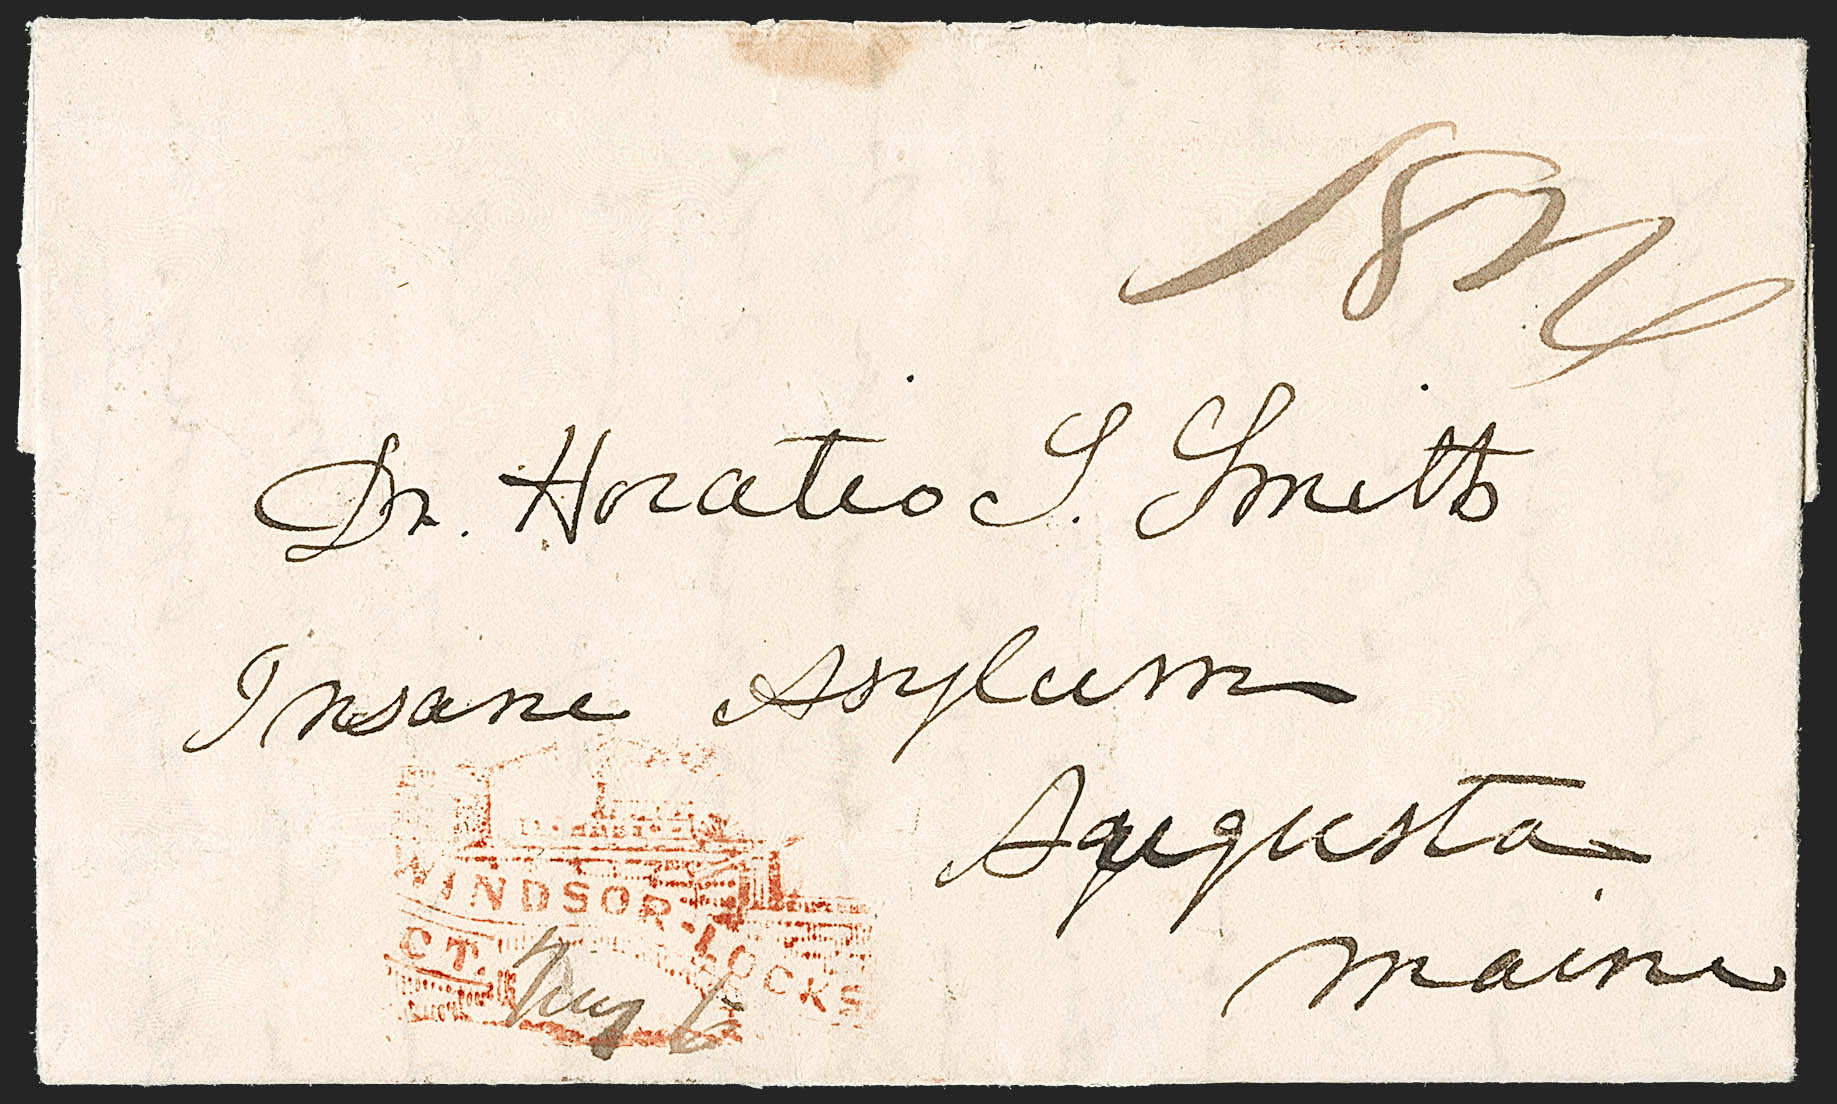 18 3/4
Dr. Horatio S. Smith
Insane Asylum
Augusta
Maine
WINDSOR LOCKS
CT.